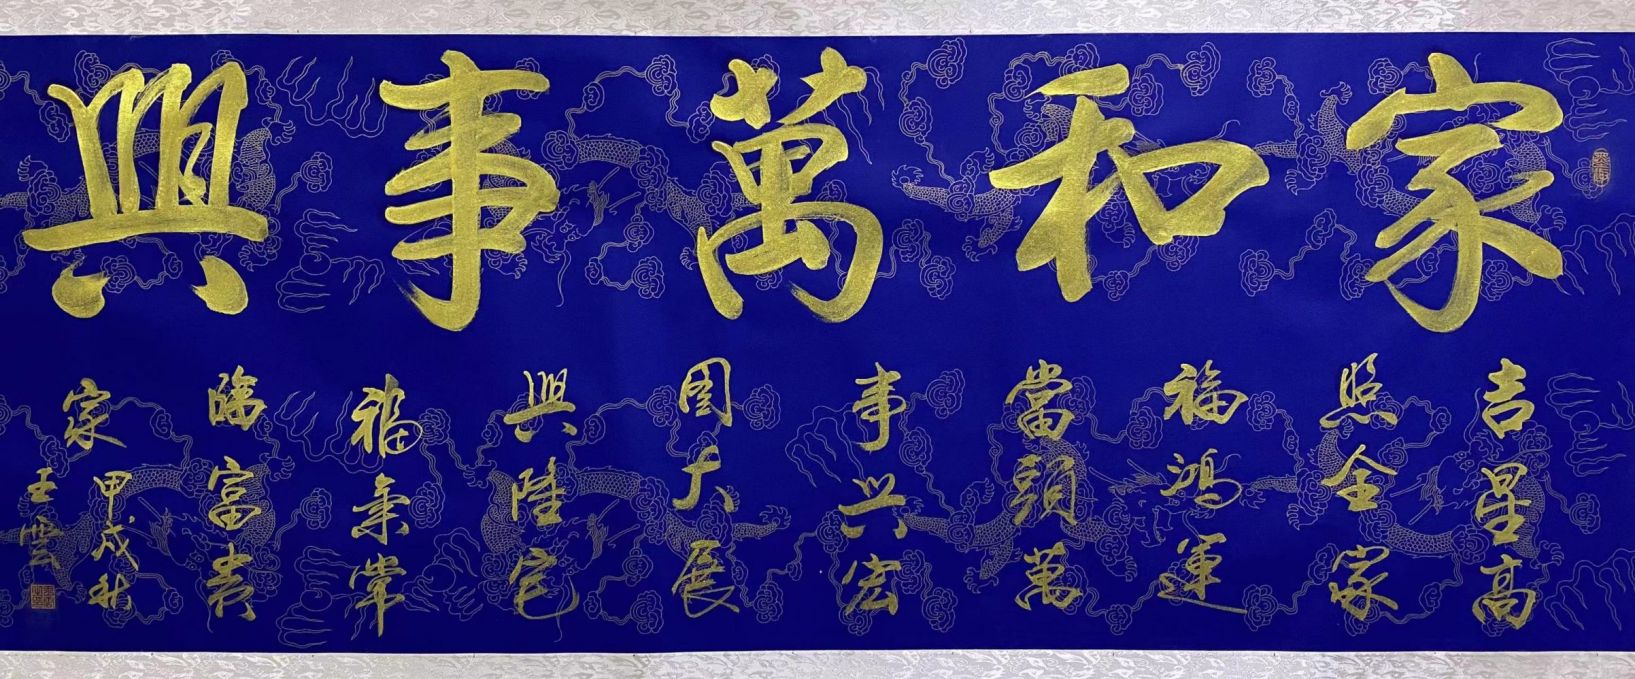 家和萬事興
吉星高
照全家
福鴻運
當頭萬
事兴宏
图大展
興隆宅
福氣常
臨富贵
家
甲戌秋
王雲